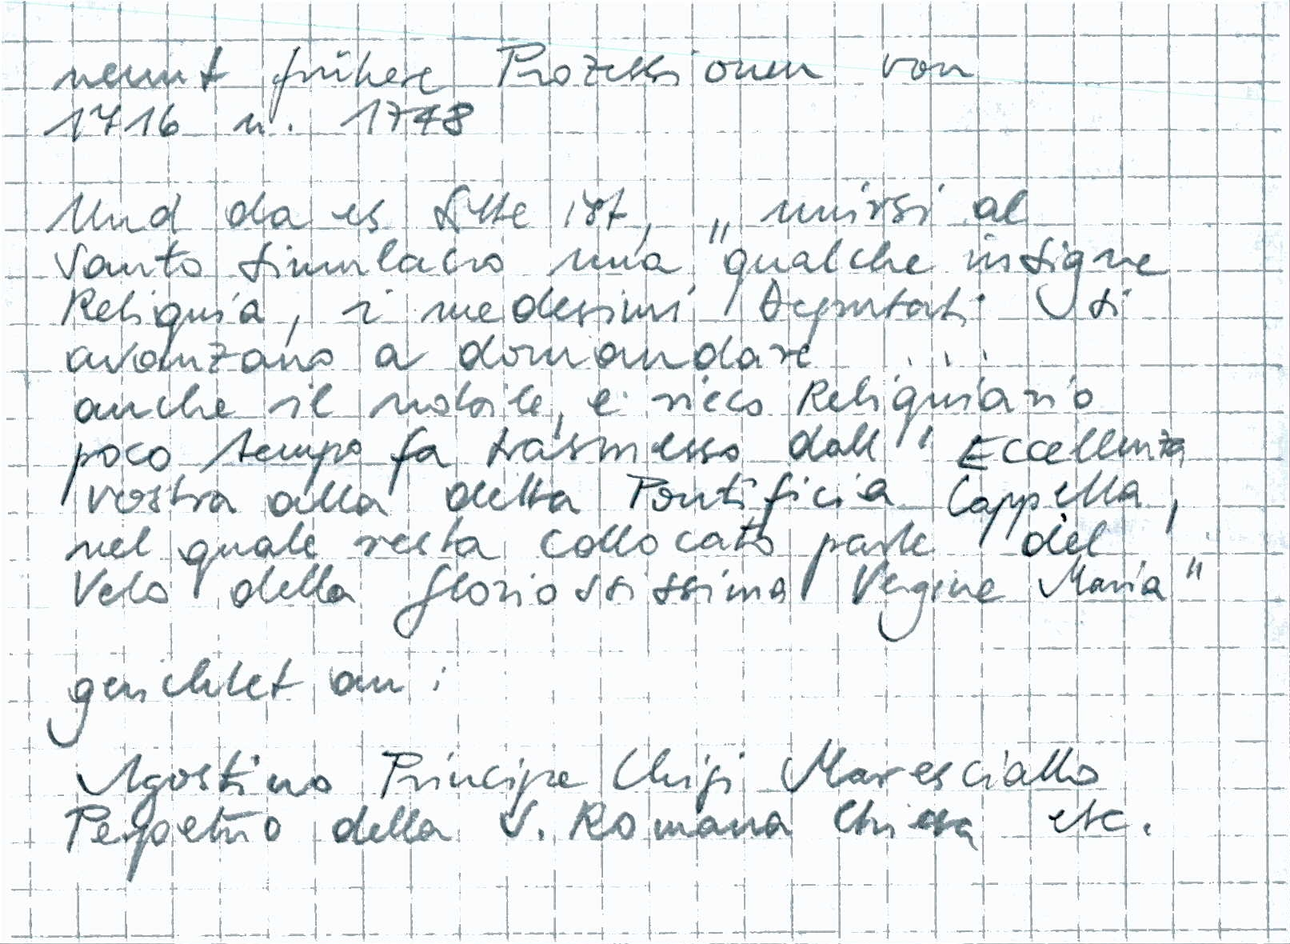 nennt frühere Prozessionen von
1716 u. 1748
Und da es Sitte ist, „unirsi al
Santo Simulacro una qualche insigne
Reliquia, i medesimi Deputati si
avanzano a domandare
anche il nobile, e ricco Reliquiario
poco tempo fa trasmesso dall' Eccellenza
vostra alla detta Pontificia Cappella,
nel quale resta collocato parte del
Velo della gloriosissima Vergine Maria"
gerichtet an:
Agostino Principe Chigi Maresciallo
Perpetuo della S. Romana Chiesa etc.